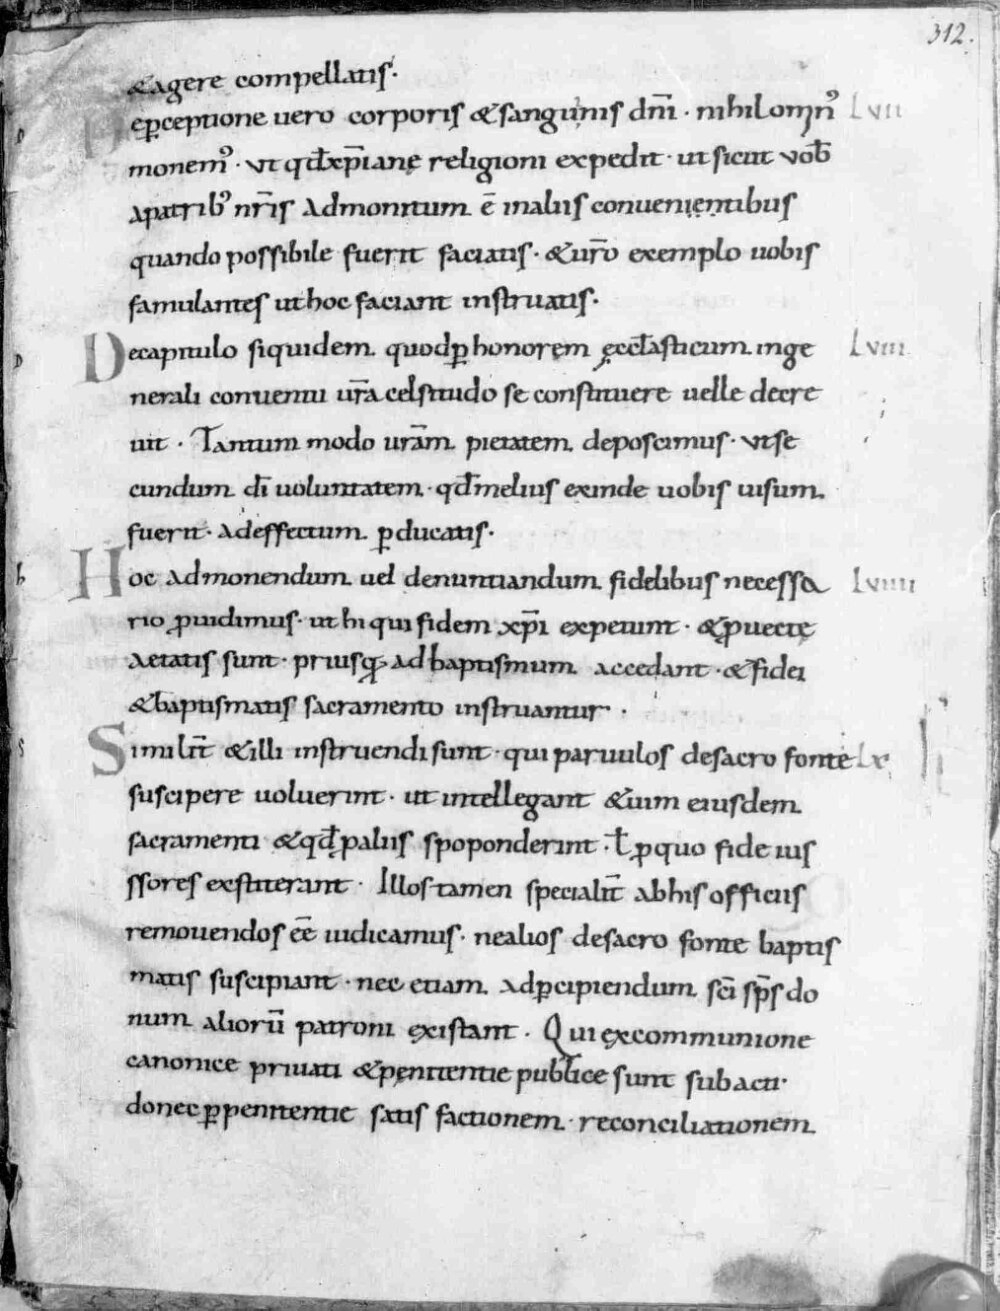 312.
&agere compellatis·
Deꝑceptione uero corporis &sanguinis dnī · nihilominꝰ Lvii
monemꝰ · vt qđ xp̄iane religioni expedit · ut sicut vob̄
apatribꝰ nr̄is admonitum ē inaliis conuenientibus
quando possibile fuerit faciatis · &ur̄o exemplo uobis
famulantes uthoc faciant instruatis·
Decapitulo siquidem quodꝑ honorem ęccłasticum inge Lviii
nerali conuentu ur̄a celsitudo se constituere uelle decre
uit · Tantum modo urām pietatem deposcimus · vtse
cundum dī uoluntatem · qđ melius exinde uobis uisum
fuerit · adeffectum ꝑducatis·
Hoc admonendum uel denuntiandum fidelibus necessa Lviiii
rio ꝓuidimus · ut hi qui fidem xp̄i expetunt · &ꝓuectę
aetatis sunt · priusꝙ̄ ad baptismum accedant · & fidei
&baptismatis sacramento instruantur ·
Similit̄ &illi instruendi sunt · qui paruulos desacro fonte Lx
suscipere uoluerint · ut intellegant &uim eiusdem
sacramenti &qđ ꝓaliis spoponderint · ł ꝓquo fide ius
ssores exstiterant · Illos tamen specialit̄ abhis officiis
remouendos eē iudicamus · nealios desacro fonte baptis
matis suscipiant · nec etiam adꝑcipiendum sc̄i sp̄s do
num aliorū patroni existant · Qui excommunione
canonice priuati &penitentie publice sunt subacti ·
donec ꝑpenitentie satis factionem · reconciliationem